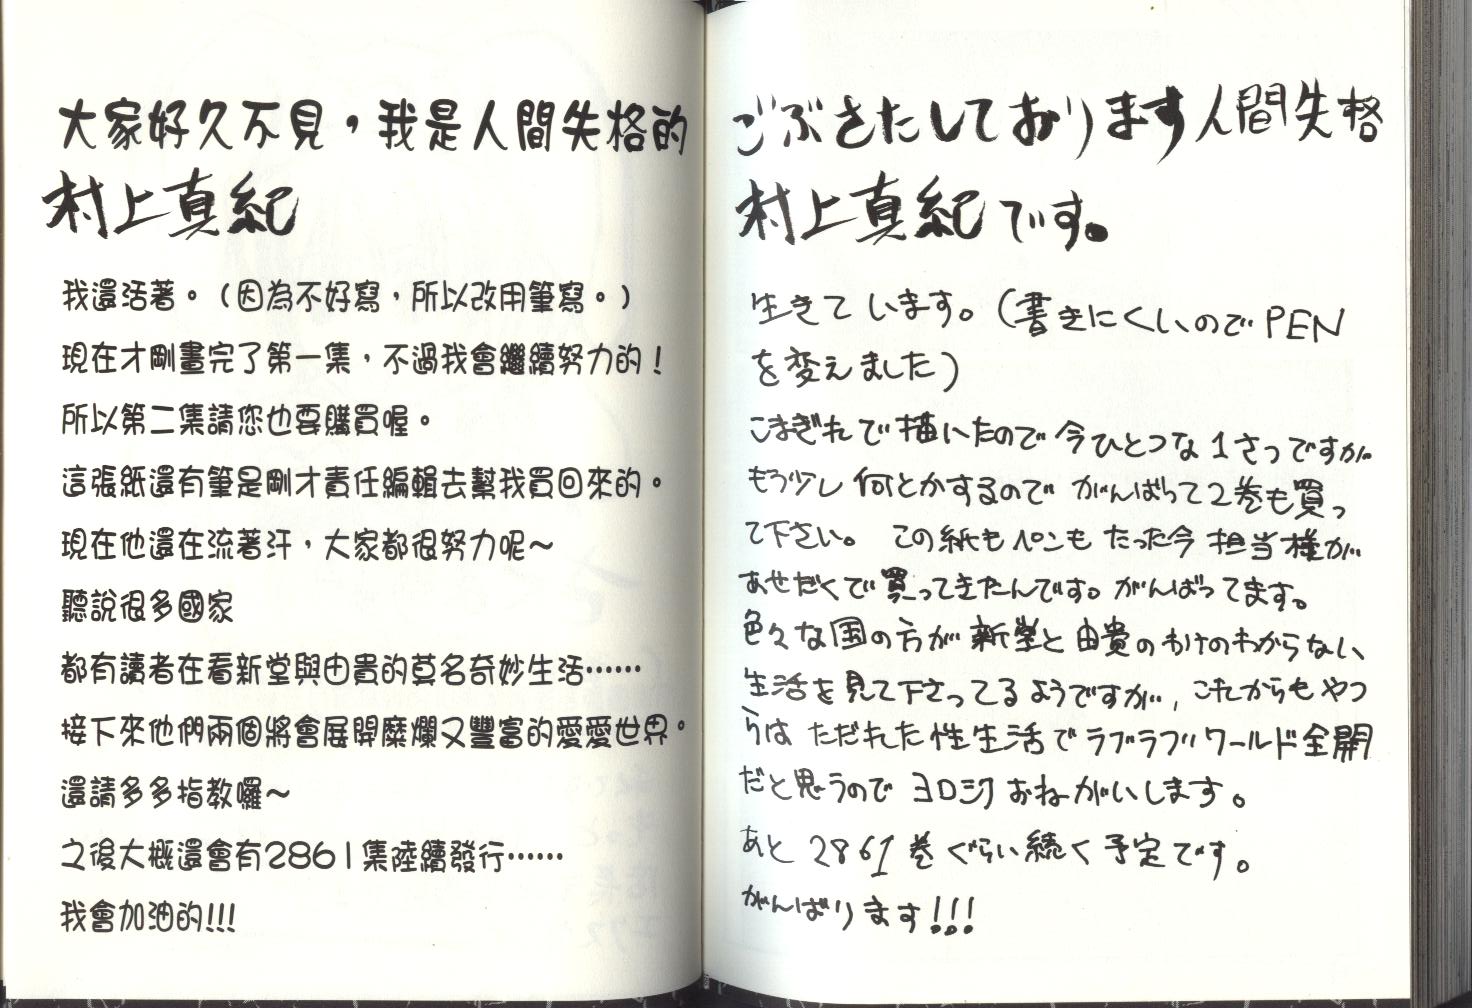 大家好久不見，我是人間失格的
村上真紀
我還活著。（因為不好寫，所以改用筆寫。）
現在才剛畫完了第一集，不過我會繼續努力的！
所以第二集請您也要購買喔。
這張紙還有筆是剛才責任編輯去幫我買回來的。
現在他還在流著汗，大家都很努力呢～
聽說很多國家
都有讀者在看新堂與由貴的莫名奇妙生活……
接下來他們兩個將會展開糜爛又豐富的愛愛世界。
還請多多指教囉～
之後大概還會有2861集陸續發行……
我會加油的!!!
ごぶさたしております人間失格
村上真紀です。
生きています。(書きにくいのでPEN
を変えました)
こまぎれで描いたので今ひとつな1さつですが
もう少し何とかするのでがんばって2巻も買っ
て下さい。この紙もペンもたった今担当様が
あせだくで買ってきたんです。がんばってます。
色々な国の方が新堂と由貴のわけのわからない
生活を見て下さってるようですが、これからもやつ
らはただれた性生活でラブラブワールド全開
だと思うのでヨロシクおねがいします。
あと2861巻ぐらい続く予定です。
がんばります!!!